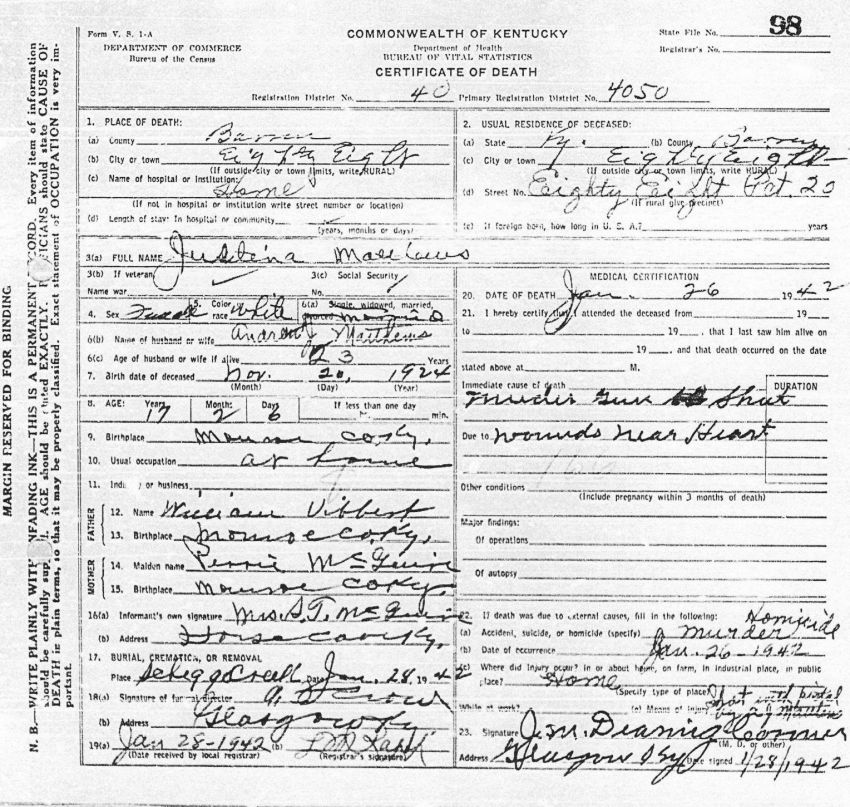 Form V. S. 1-A
DEPARTMENT OF COMMERCE
Bureau of the Census
COMMONWEALTH OF KENTUCKY
Department of Health
BUREAU OF VITAL STATISTICS
CERTIFICATE OF DEATH
State File No. 98
Registrar's No.
Registration District No. 40 Primary Registration District No. 4050
MARGIN RESERVED FOR BINDING
N. B.—WRITE PLAINLY WITH UNFADING INK—THIS IS A PERMANENT RECORD. Every item of information
should be carefully supplied. AGE should be stated EXACTLY. PHYSICIANS should state CAUSE OF
DEATH in plain terms, so that it may be properly classified. Exact statement of OCCUPATION is very im-
portant.
1. PLACE OF DEATH:
(a) County Barren
(b) City or town Eighty Eight
(If outside city or town limits, write RURAL)
(c) Name of hospital or institution:
Home
(If not in hospital or institution write street number or location)
(d) Length of stay: In hospital or community
(years, months or days)
2. USUAL RESIDENCE OF DECEASED:
(a) State Ky. (b) County Barren
(c) City or town Eighty Eight
(If outside city or town limits, write RURAL)
(d) Street No. Eighty Eight Pct. 20
(If rural give precinct)
(e) If foreign born, how long in U. S. A.? years
3(a) FULL NAME
3(b) If veteran 3(c) Social Security
Name war No.
4. Sex Female 5. Color or race White 6(a) Single, widowed, married, divorced Married
6(b) Name of husband or wife Matthews
6(c) Age of husband or wife if alive 23 Years
7. Birth date of deceased Nov. 20, 1924
(Month) (Day) (Year)
8. AGE: Years 17 Months 2 Days 6 If less than one day
min.
9. Birthplace Monroe Co Ky.
10. Usual occupation at home
11. Industry or business
FATHER
12. Name William Vibbert
13. Birthplace Monroe Co Ky.
MOTHER
14. Maiden name McGuire
15. Birthplace Monroe Co Ky.
16(a) Informant's own signature Mrs. S.T. McGuire
(b) Address Horse Cave Ky.
17. BURIAL, CREMATION, OR REMOVAL
Place Date Jan. 28, 1942
18(a) Signature of funeral director Crow
(b) Address Glasgow Ky
19(a) Jan 28-1942 (b)
(Date received by local registrar) (Registrar's signature)
MEDICAL CERTIFICATION
20. DATE OF DEATH Jan. 26 1942
21. I hereby certify that I attended the deceased from 19
to 19 , that I last saw him alive on
19 , and that death occurred on the date
stated above at M.
Immediate cause of death DURATION
Murder Gun Shot
Due to wounds near Heart
Other conditions
(Include pregnancy within 3 months of death)
Major findings:
Of operations
Of autopsy
22. If death was due to external causes, fill in the following: Homicide
(a) Accident, suicide, or homicide (specify) murder
(b) Date of occurrence Jan. 26-1942
(c) Where did injury occur? in or about home, on farm, in industrial place, in public
place? Home
(Specify type of place)
While at work? (e) Means of injury
23. Signature J.M. Dearing Coroner
(M. D. or other)
Address Glasgow Ky Date signed 1/28/1942